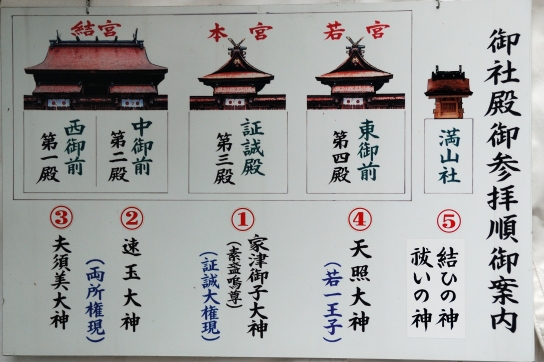 御社殿御参拝順御案内
満山社
⑤
結ひの神
祓いの神
若宮
東御前
第四殿
④
天照大神
(若一王子)
本宮
証誠殿
第三殿
①
家津御子大神
(素盞嗚尊)
(証誠大権現)
結宮
中御前
第二殿
②
速玉大神
(両所権現)
西御前
第一殿
③
夫須美大神